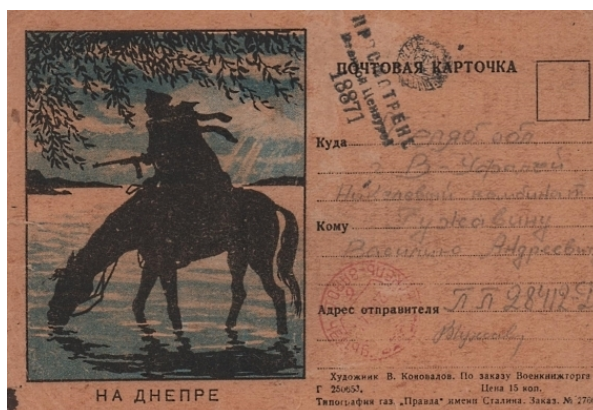 ПРОСМОТРЕНО
Военной Цензурой
18871
ПОЧТОВАЯ КАРТОЧКА
Куда обл
г В-Уфалей
Никелевый комбинат
Кому Ружавину
Василию Андреевич
Адрес отправителя П П 28412-
НА ДНЕПРЕ
Художник В. Коновалов. По заказу Военкнижторга
Г 250653. Цена 15 коп.
Типография газ. „Правда" имени Сталина. Заказ. № 270